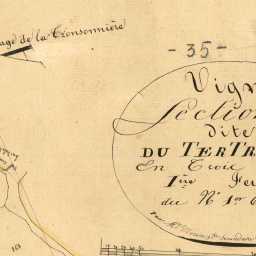 age de la Tronsonnière
- 35 -
Vign
Section
dite
DU TERTR
En Trois
1ère Feu
du N° 1er